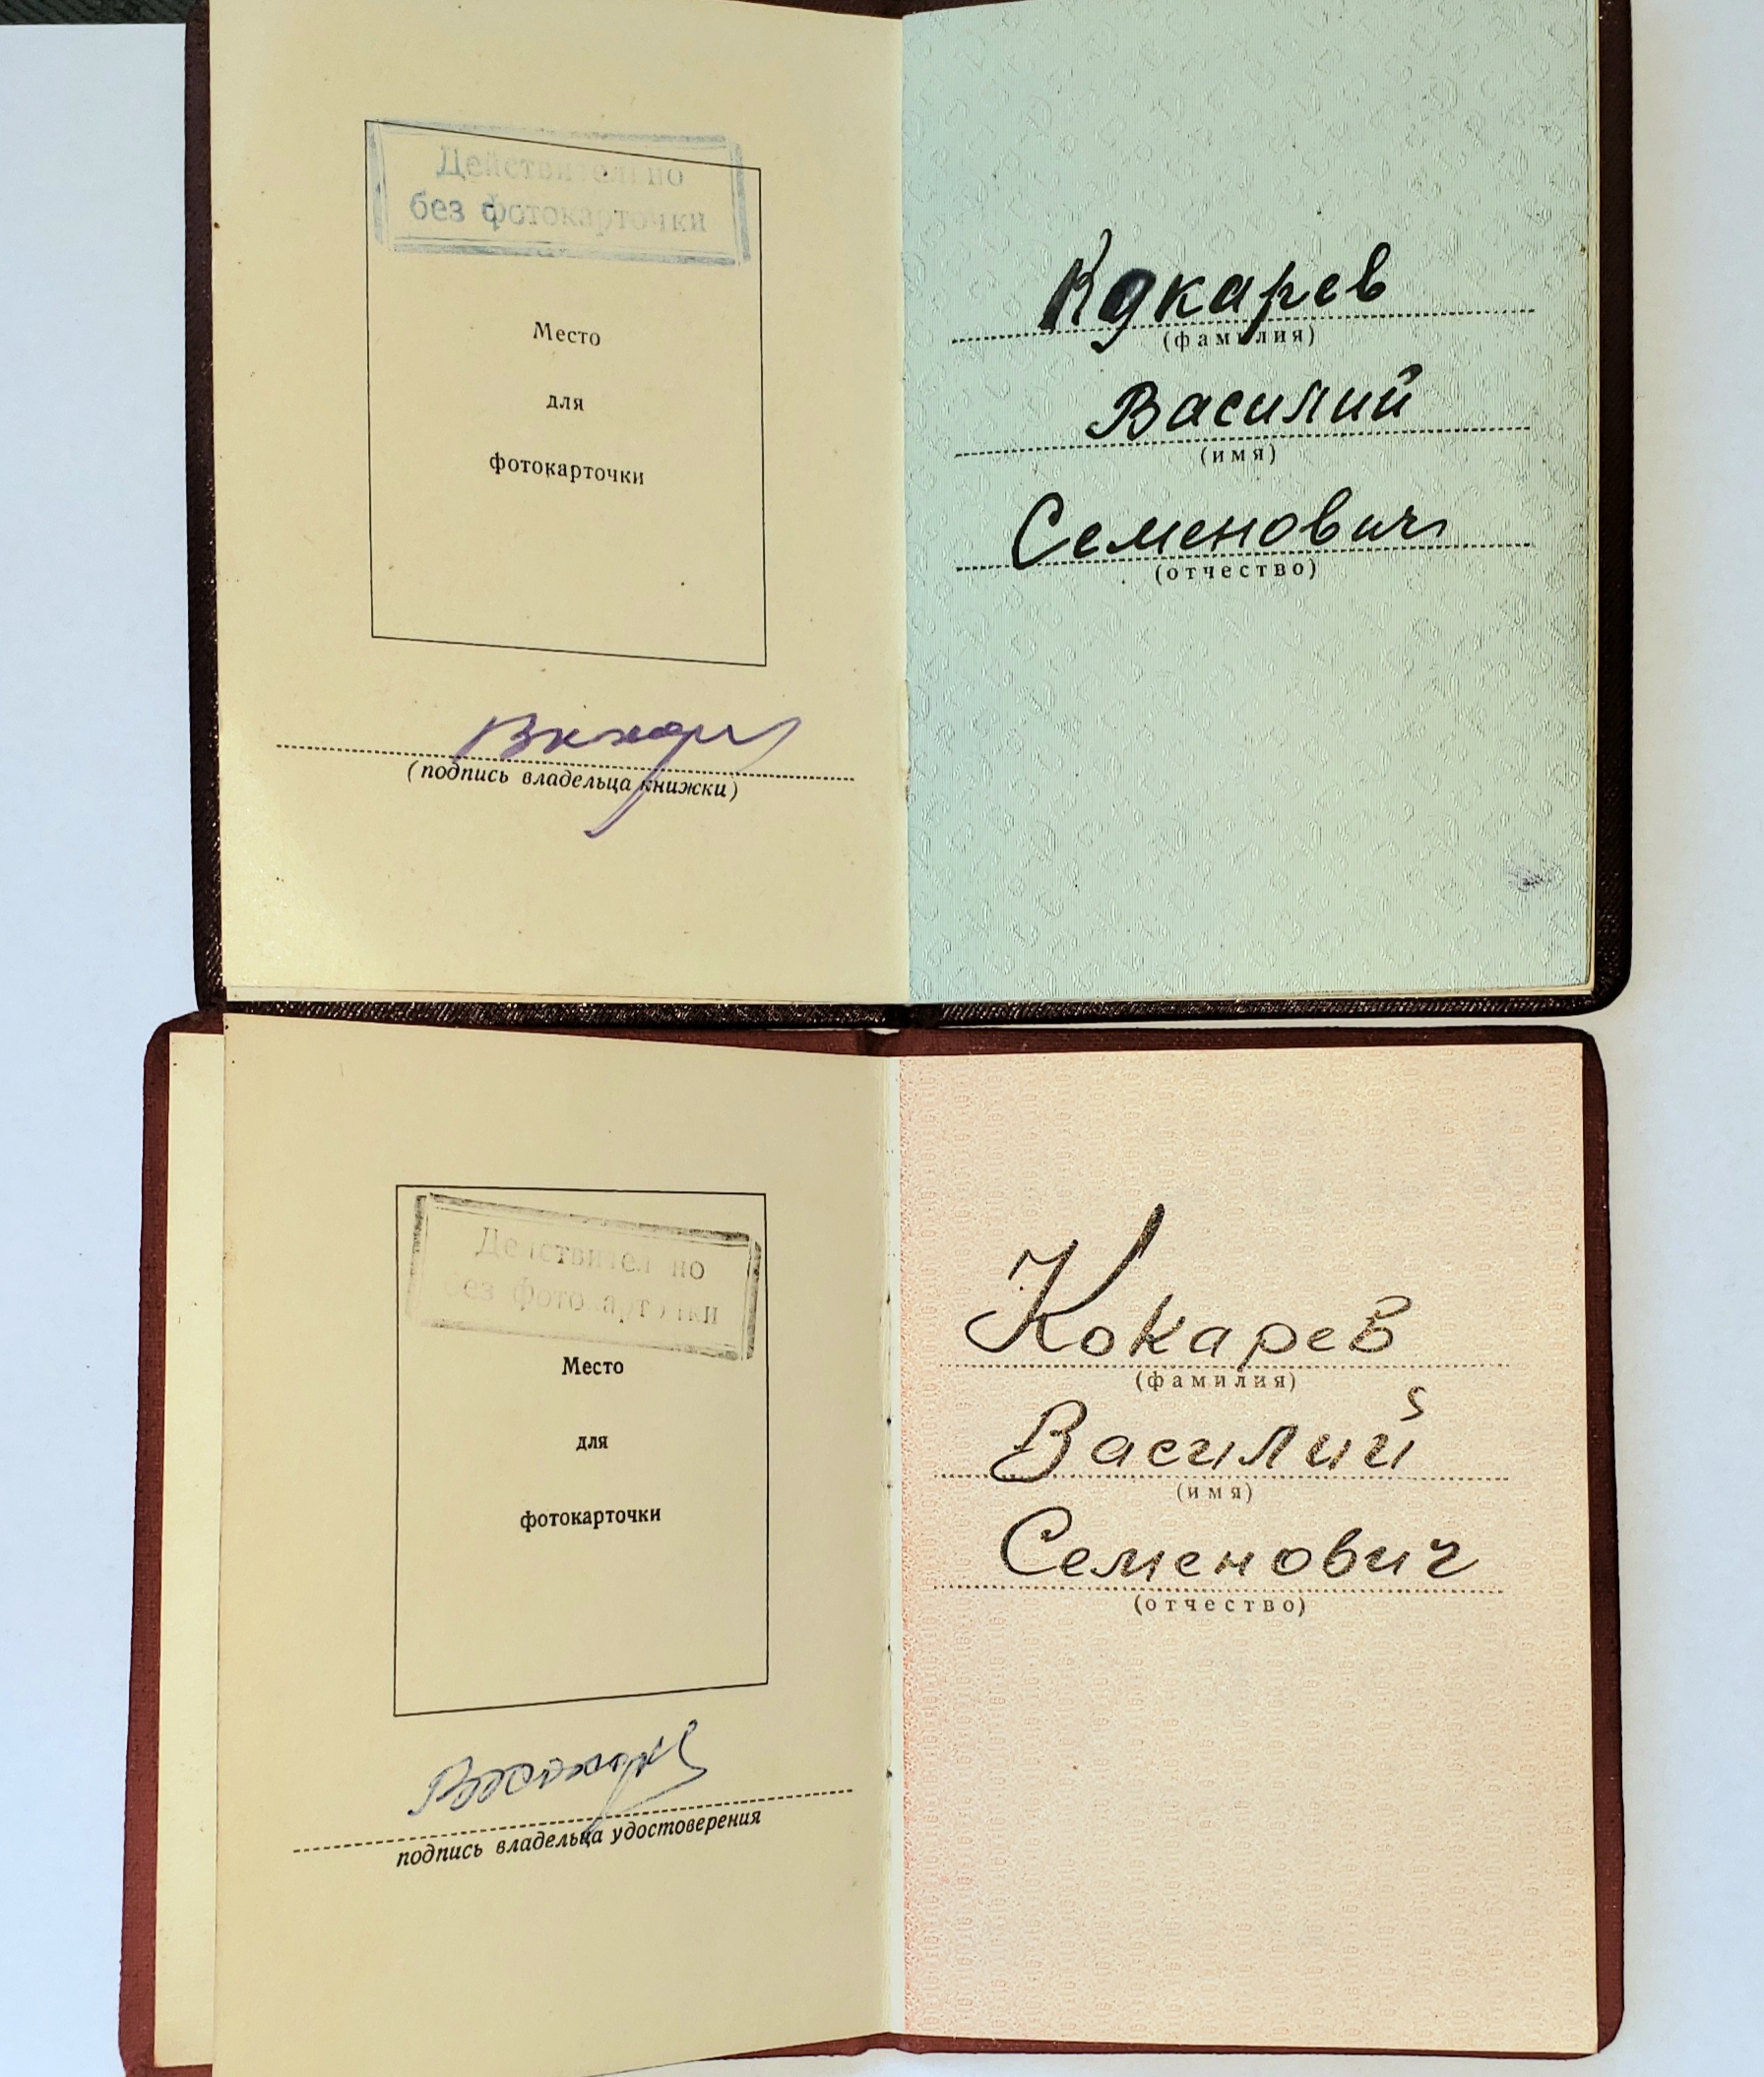 Действительно
без фотокарточки
Место
для
фотокарточки
(подпись владельца книжки)
Кокарев
(фамилия)
Василий
(имя)
Семенович
(отчество)
Действительно
без фотокарточки
Место
для
фотокарточки
подпись владельца удостоверения
Кокарев
(фамилия)
Василий
(имя)
Семенович
(отчество)